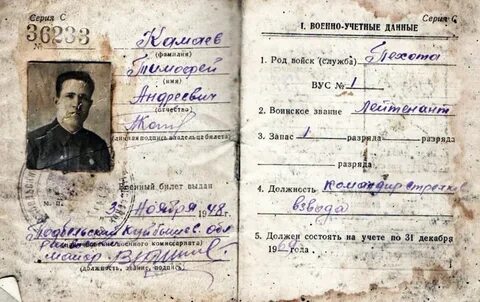 Серия С
36233
№
Камаев
(фамилия)
Тимофей
(имя)
Андреевич
(отчество)
(личная подпись владельца билета)
Военный билет выдан
М. П.
Ноября 1948 г.
Подбельский Куйбышев. обл
военного комиссариата)
майор
(должность, звание, подпись)
Серия С
I. ВОЕННО-УЧЕТНЫЕ ДАННЫЕ
1. Род войск (служба) Пехота
ВУС № 1
2. Воинское звание Лейтенант
3. Запас 1 разряда разряда
разряда
4. Должность командир стрелков
взвода
5. Должен состоять на учете по 31 декабря
19 г.